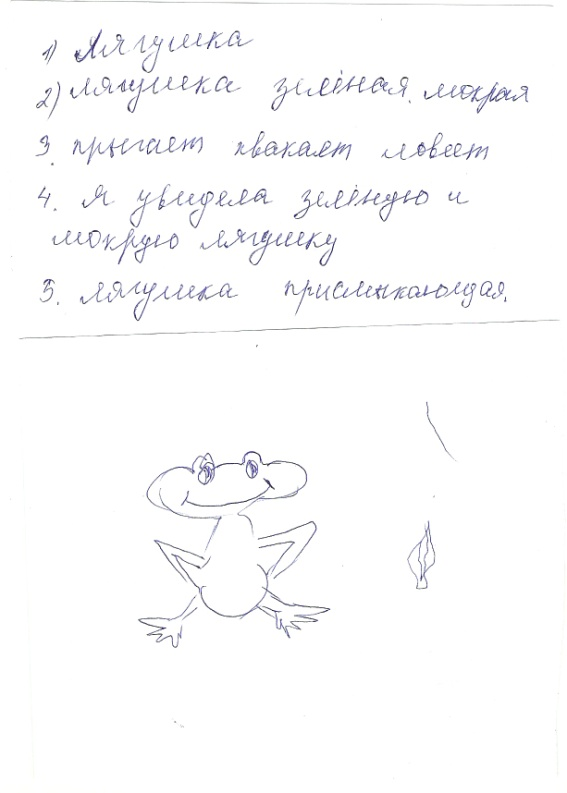 1) Лягушка
2) лягушка зелёная, мокрая
3. прыгает квакает ловит
4. Я увидела зелёную и
мокрую лягушку
5. лягушка присмыкающая.